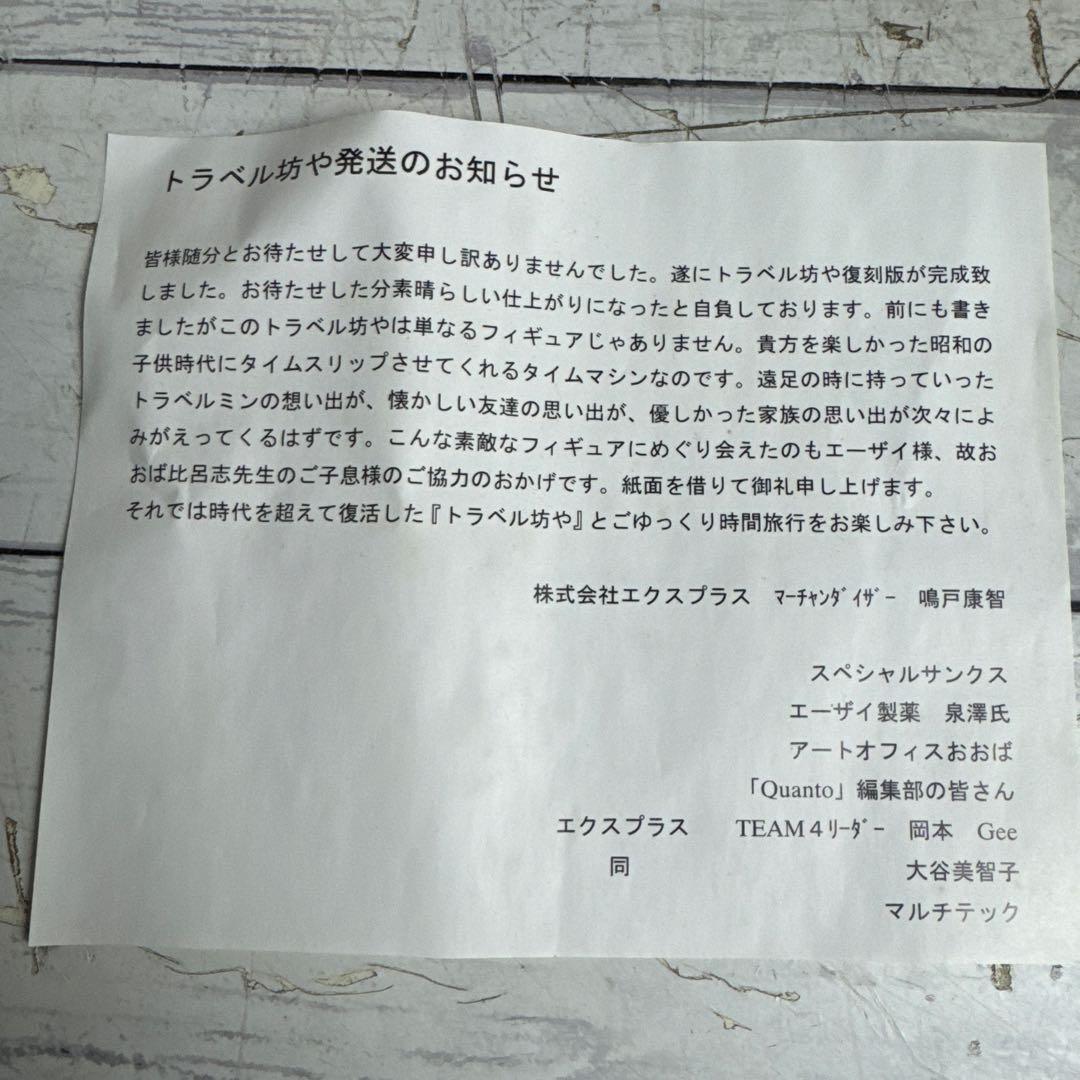 トラベル坊や発送のお知らせ
皆様随分とお待たせして大変申し訳ありませんでした。遂にトラベル坊や復刻版が完成致
しました。お待たせした分素晴らしい仕上がりになったと自負しております。前にも書き
ましたがこのトラベル坊やは単なるフィギュアじゃありません。貴方を楽しかった昭和の
子供時代にタイムスリップさせてくれるタイムマシンなのです。遠足の時に持っていった
トラベルミンの想い出が、懐かしい友達の思い出が、優しかった家族の思い出が次々によ
みがえってくるはずです。こんな素敵なフィギュアにめぐり会えたのもエーザイ様、故お
おば比呂志先生のご子息様のご協力のおかげです。紙面を借りて御礼申し上げます。
それでは時代を超えて復活した『トラベル坊や』とごゆっくり時間旅行をお楽しみ下さい。
株式会社エクスプラス　ﾏｰﾁｬﾝﾀﾞｲｻﾞｰ　鳴戸康智
スペシャルサンクス
エーザイ製薬　泉澤氏
アートオフィスおおば
「Quanto」編集部の皆さん
エクスプラス　TEAM４ﾘｰﾀﾞｰ　岡本　Gee
同　大谷美智子
マルチテック